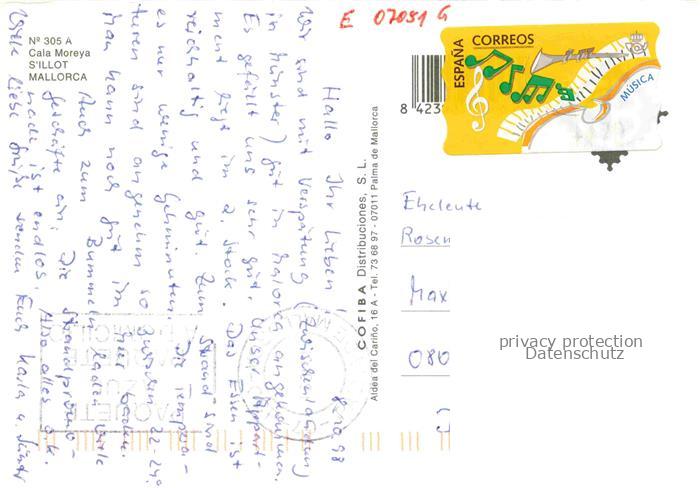 Nº 305 A
Cala Moreya
S'ILLOT
MALLORCA
E 07091 G
ESPAÑA
CORREOS
MÚSICA
8 423
COFIBA Distribuciones, S. L.
Aldea del Cariño, 16 A - Tel. 73 68 97 - 07011 Palma de Mallorca
8.10.98
Hallo Ihr Lieben!
Wir sind mit Verspätung (Zwischenlandung
in Münster) gut in Mallorca angekommen.
Es gefällt uns sehr gut. Unser Appart-
ment liegt im 2. Stock. Das Essen ist
reichhaltig und gut. Zum Strand sind
es nur wenige Gehminuten. Die Tempera-
turen sind angenehm so zwischen 22-24°.
Man kann noch gut im Meer baden.
Auch zum Bummeln laden viele
Geschäfte ein. Die Strandprome-
nade ist endlos. Also alles o.k.
Viele liebe Grüße senden Euch Karla u.
Eheleute
Rosen
Max
080
privacy protection
Datenschutz